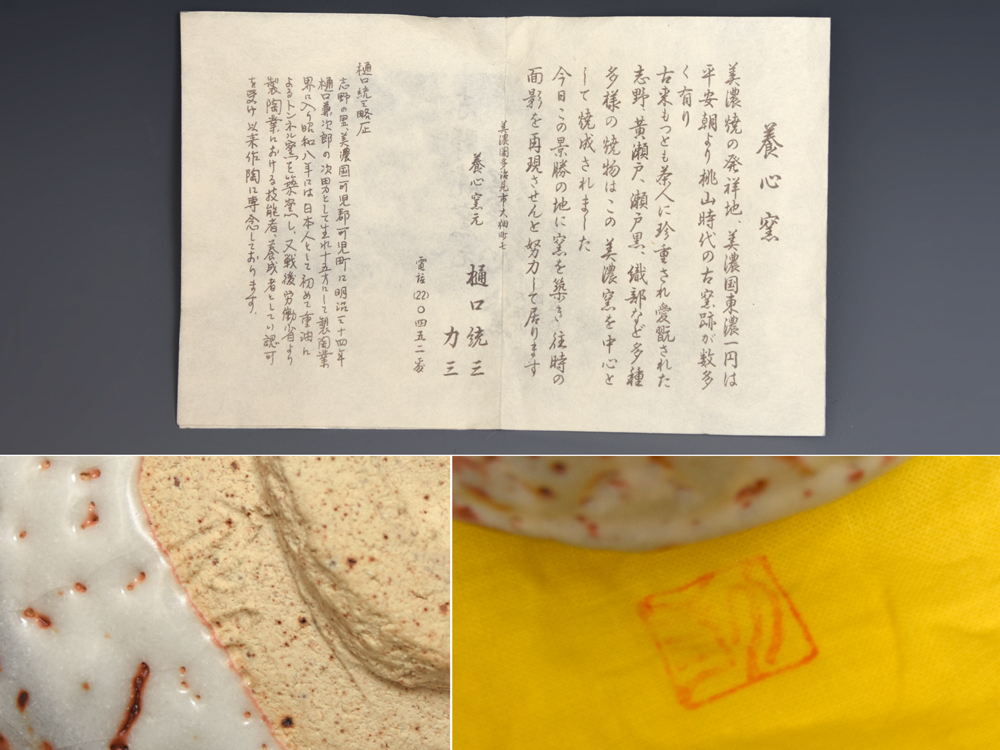 養心窯
美濃焼の発祥地、美濃国東濃一円は
平安朝より桃山時代の古窯跡が数多
く有り
古来もっとも茶人に珍重され愛翫された
志野、黄瀬戸、瀬戸黒、織部など多種
多様の焼物はこの美濃窯を中心と
して焼成されました
今日この景勝の地に窯を築き往時の
面影を再現させんと努力して居ります
美濃国多治見市大畑町七
養心窯元 樋口統三
力三
電話(22)〇四五二番
樋口統三略歴
志野の里、美濃国可児郡可児町に明治三十四年
樋口兼次郎の次男として生れ十五才にして製陶業
界に入り昭和八年には日本人として初めて重油に
よるトンネル窯を築窯し、又戦後労働省より
製陶業における技能者養成者としての認可
を受け以来作陶に専念しております。